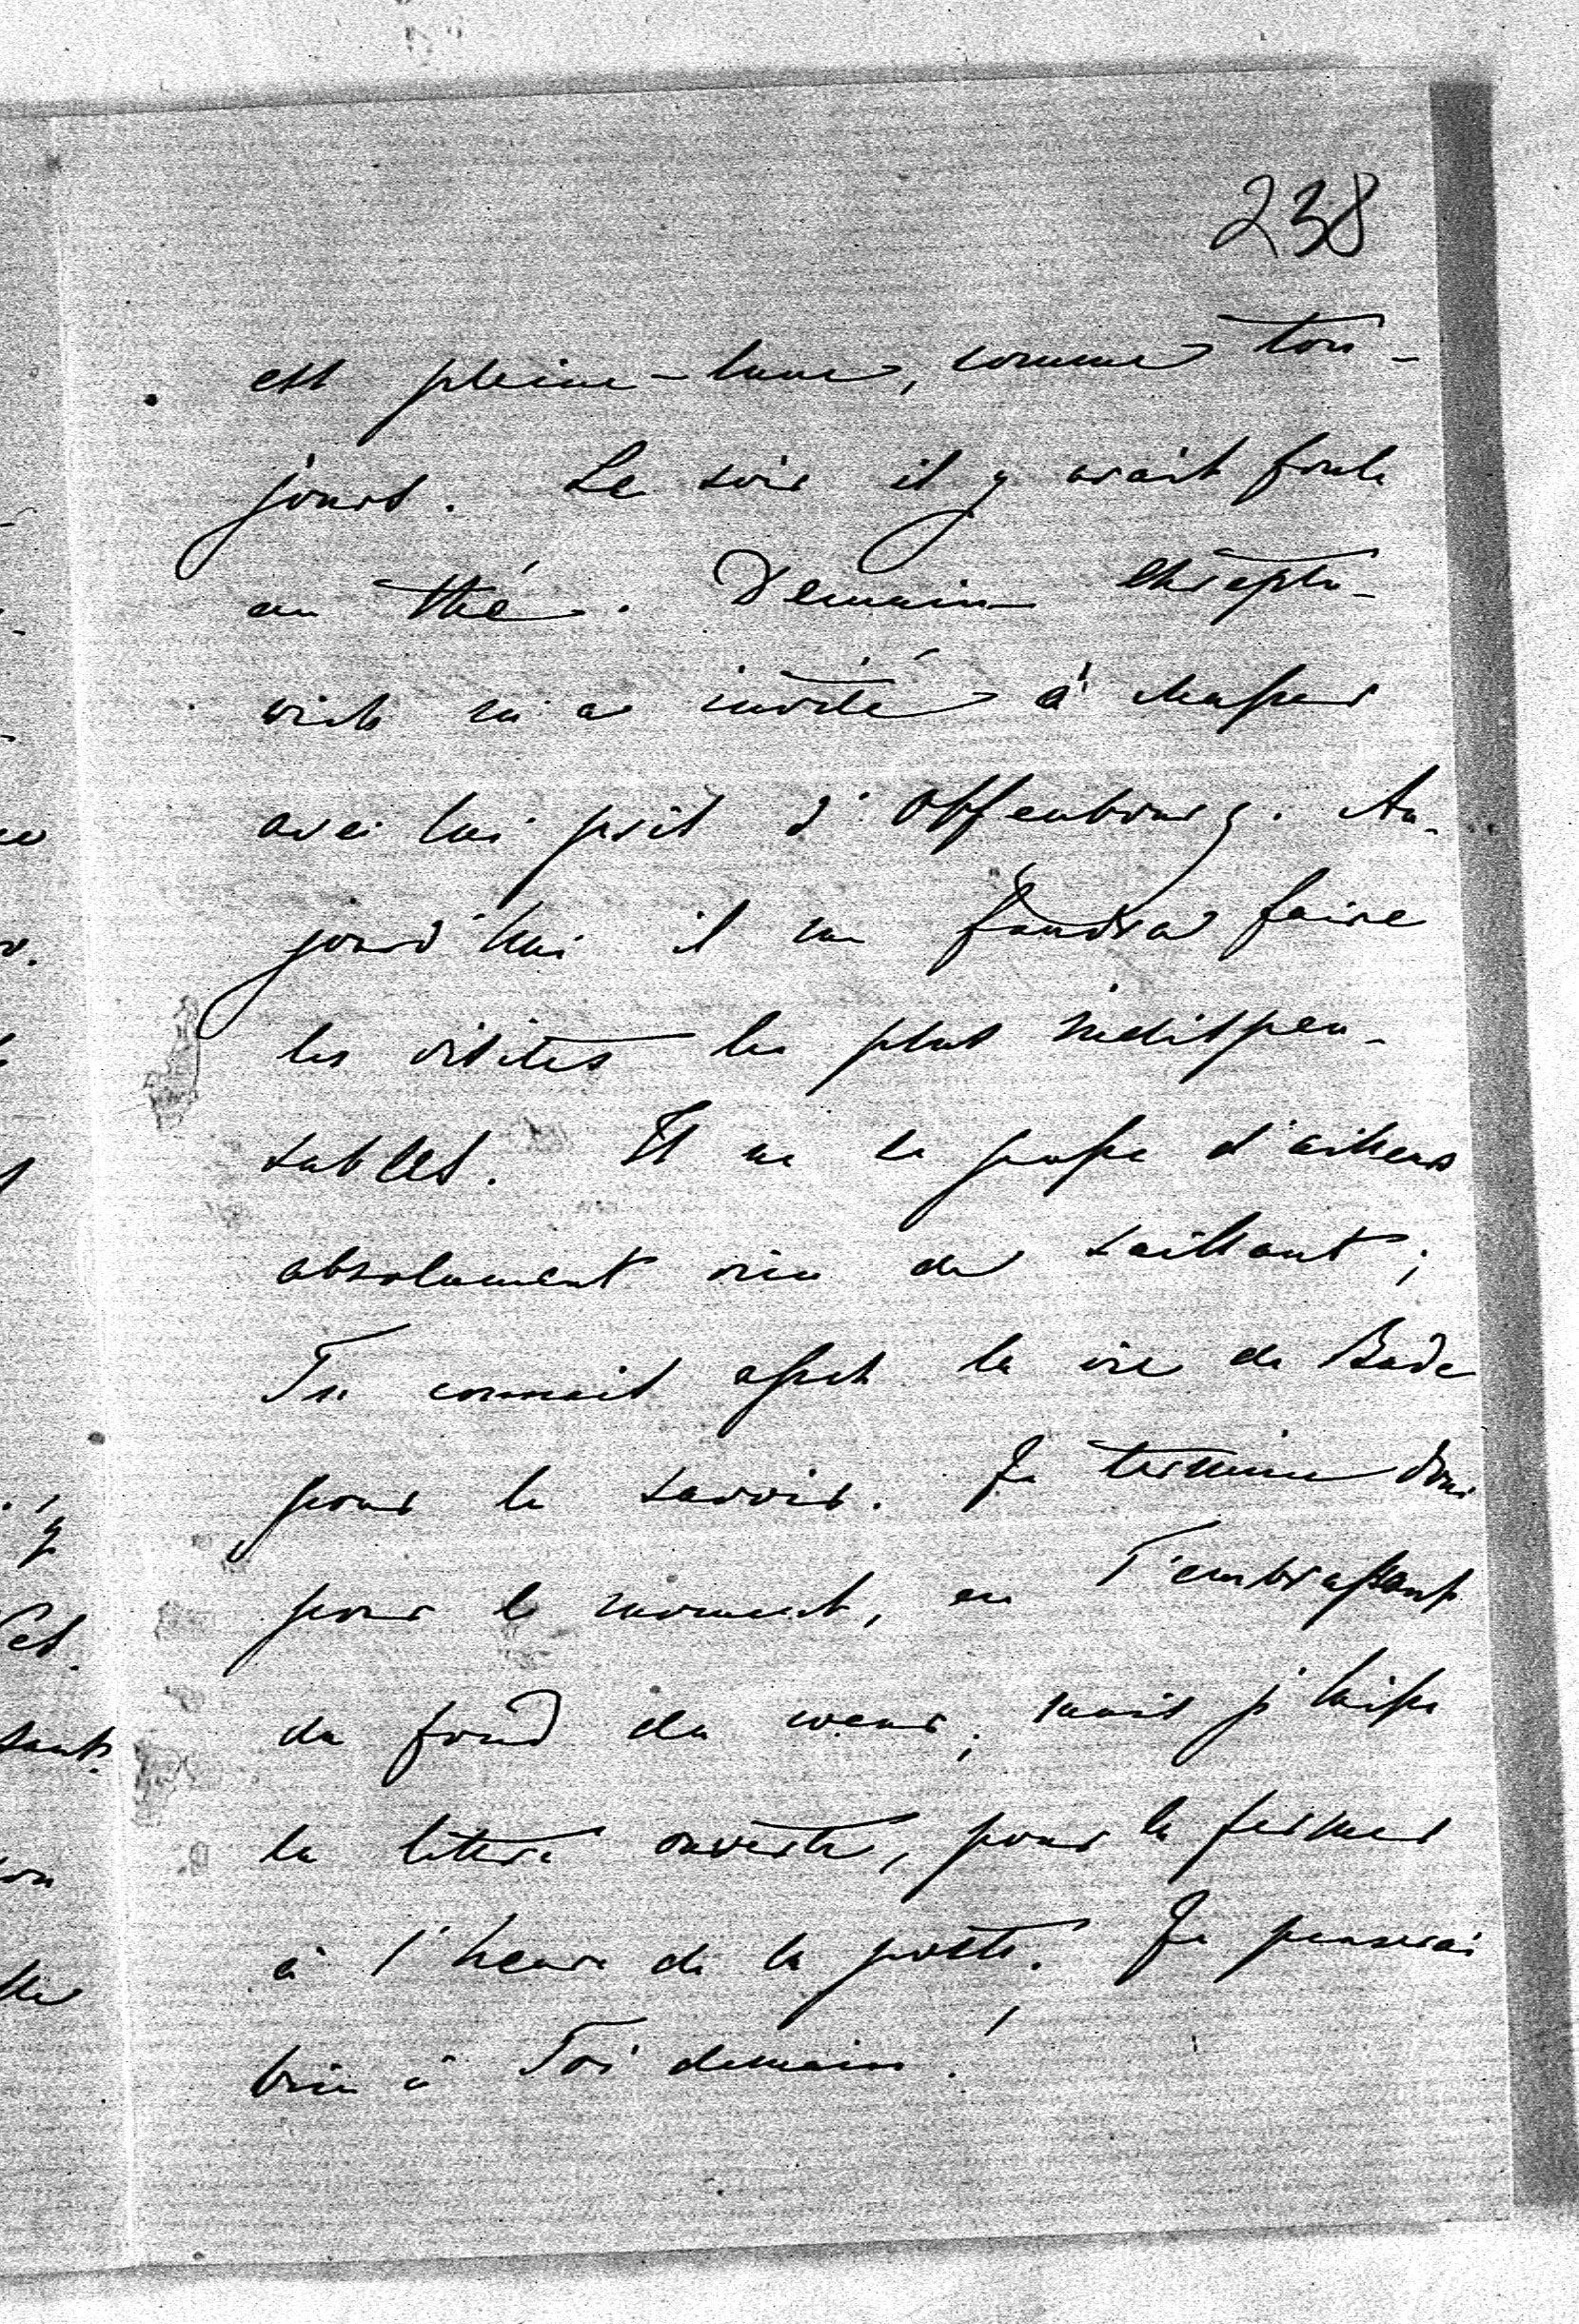 238
est pleine-lune, comme tou-
jours. Le soir il y avait foule
au thé. Demain
m'a invité à chasser
avec lui près d'Offenbourg. Au-
jourd'hui il me faudra faire
les visites les plus indispen-
sables. Il ne se passe d'ailleurs
absolument rien de saillant;
Tu connais assez la vie de Bade
pour le savoir. Je termine donc
pour le moment, en T'embrassant
du fond du coeur; mais je laisse
la lettre ouverte, pour la fermer
à l'heure de la poste. Je penserai
bien à Toi demain!